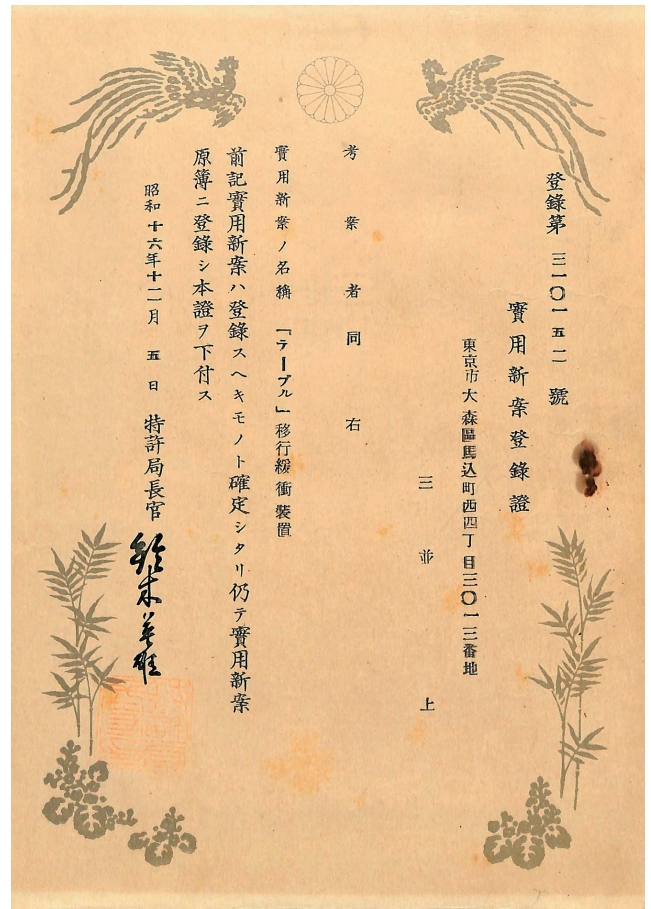 登錄第 三一〇一五二 號
實用新案登錄證
東京市大森區馬込町西四丁目三〇一三番地
三並上
考案者同右
實用新案ノ名稱 「テーブル」移行緩衝裝置
前記實用新案ハ登錄スヘキモノト確定シタリ仍テ實用新案
原簿ニ登錄シ本證ヲ下付ス
昭和十六年十二月五日 特許局長官 鈴木英雄